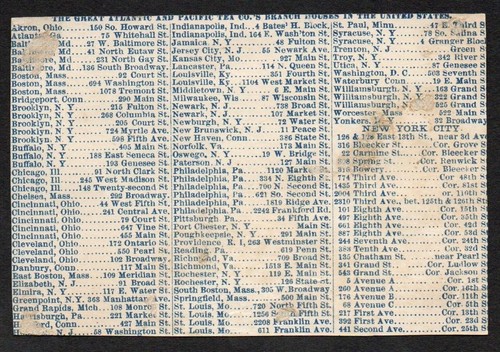 THE GREAT ATLANTIC AND PACIFIC TEA CO.'S BRANCH HOUSES IN THE UNITED STATES.
Akron, Ohio.....150 So. Howard St.
75 Whitehall St.
Md 27 W. Baltimore St.
Baltimore Md 41 North Eutaw St.
Baltimore, Md....231 North Gay St.
Baltimore, Md...136 South Broadway
Boston, Mass.......68 Court St.
Boston, Mass.......694 Washington St.
Boston, Mass.......1078 Tremont St.
Bridgeport, Conn.......290 Main St.
Brooklyn, N. Y.......215 Fulton St.
Brooklyn, N. Y.......268 Columbia St.
Brooklyn, N. Y.......205 Court St.
Brooklyn, N. Y.......724 Myrtle Av.
Brooklyn, N. Y.......598 Fifth Av.
Buffalo, N. Y.......405 Main St.
Buffalo, N. Y.......188 East Seneca St.
Buffalo, N. Y.......193 Genesee St.
Chicago, Ill.......91 North Clark St.
Chicago, Ill.......245 West Madison St.
Chicago, Ill.......148 Twenty-second St.
Chelsea, Mass.......292 Broadway.
Cincinnati, Ohio.......44 West Fifth St.
Cincinnati, Ohio.......241 Central Av.
Cincinnati, Ohio.......79 Court St.
Cincinnati, Ohio.......647 Vine St.
Cincinnati, Ohio.......455 Main St.
Cleveland, Ohio.......172 Ontario St.
Cleveland, Ohio.......550 Pearl St.
Cleveland, Ohio.......102 Broadway
Danbury, Conn.......117 Main St.
East Boston, Mass.......109 Meridian St.
Elizabeth, N. J.......91 Broad St.
Elmira, N. Y.......117 E. Water St.
Greenpoint, N. Y.......363 Manhattan Av.
Grand Rapids, Mich.......108 Monroe St.
Harrisburg, Pa.......221 Market St.
Conn.......427 Main St.
58 Washington St.
Indianapolis, Ind...4 Bates' H. Block,
Indianapolis, Ind.164 E. Wash'ton St.
Jamaica, N. Y.......48 Fulton St.
Jersey City, N. J...55 Newark Ave.
Kansas City, Mo.......927 Main St.
Lancaster, Pa.......114 N. Queen St.
Louisville, Ky.......351 Fourth St.
Louisville, Ky....1104 West Market St.
Middletown, N. Y.......6 E. Main St.
Milwaukee, Wis.......87 Wisconsin St.
Newark, N. J.......738 Broad St.
Newark, N. J.......107 Market St.
Newburgh, N. Y.......72 Water St.
New Brunswick, N. J...11 Peace St.
New Haven, Conn.......386 State St.
Norfolk, Va.......173 Main St.
Oswego, N. Y.......19 W. Bridge St.
Paterson, N. J.......127 Main St.
Philadelphia, Pa.......1120 Market St.
Philadelphia, Pa.......334 N. Eighth St.
Philadelphia, Pa.......701 So. Second St.
Philadelphia, Pa.......621 So. Second St.
Philadelphia, Pa.......1619 Ridge Ave.
Philadelphia, Pa...2249 Frankford Rd.
Pittsburg, Pa.......34 Fifth Av.
Port Chester, N. Y.......Main St.
Poughkeepsie, N. Y.......291 Main St.
Providence R. I, 263 Westminster St.
Reading, Pa.......619 Penn St.
Richmond, Va.......709 Broad St.
Richmond, Va.......1518 E. Main St.
Rochester, N. Y.......119 E. Main St.
Rochester, N. Y.......126 State St.
South Boston, Mass.305 W. Broadway,
Springfield, Mass.......500 Main St.
St. Louis, Mo.......720 North Fifth St.
St. Louis, Mo.......1256 South Fifth St.
St. Louis, Mo.......2208 Franklin Av.
St. Louis, Mo.......611 Franklin Ave.
St. Paul, Minn.......47 E. Third St
Syracuse, N. Y.......78 So. Salina St
Syracuse, N. Y.......4 Granger Block
Trenton, N. J.......Green St
Troy, N. Y.......342 River St
Utica, N. Y.......87 Genesee St
Washington, D. C.......503 Seventh St
Waterbury Conn.......Main St
Williamsburgh, N. Y.......163 Grand St
Williamsburgh, N. Y.......391 Grand St
Williamsburgh, N. Y.......525 Grand St
Worcester Mass.......522 Main St
Yonkers, N. Y.......32 Broadway
NEW YORK CITY.
126 & 128 East 13th St., near 3d Av
216 Bleecker St.......Cor. Grove S
22 Carmine St.......Cor. Bleecker S
Spring St.......Cor. Renwick S
310 Bowery.......Cor. Bleecker S
774 Third Av.......Cor. 48th S
1435 Third Av.......Cor. 81st S
2004 Third Av.......Cor. 110th S
2310 Third Av., bet. 125th & 126th S
101 Eighth Av.......Cor. 15th S
461 Eighth Av.......Cor. 33d S
663 Eighth Av.......Cor. 42d S
887 Eighth Av.......Cor. 53d S
344 Seventh Av.......Cor. 29th S
388 Tenth Av.......Cor. 33d S
151 Chatham St.......near Pearl
341 Grand St.......Cor. Ludlow
543 Grand St.......Cor Jackson
5 Avenue A.......Cor. 1st
210 Avenue A.......Cor. 13th
160 Avenue B.......Cor. 10th
68 Avenue C.......Cor. 5th
217 First Av.......Cor. 13th
392 First Av.......Cor. 23d S
441 Second Av.......Cor. 25th S